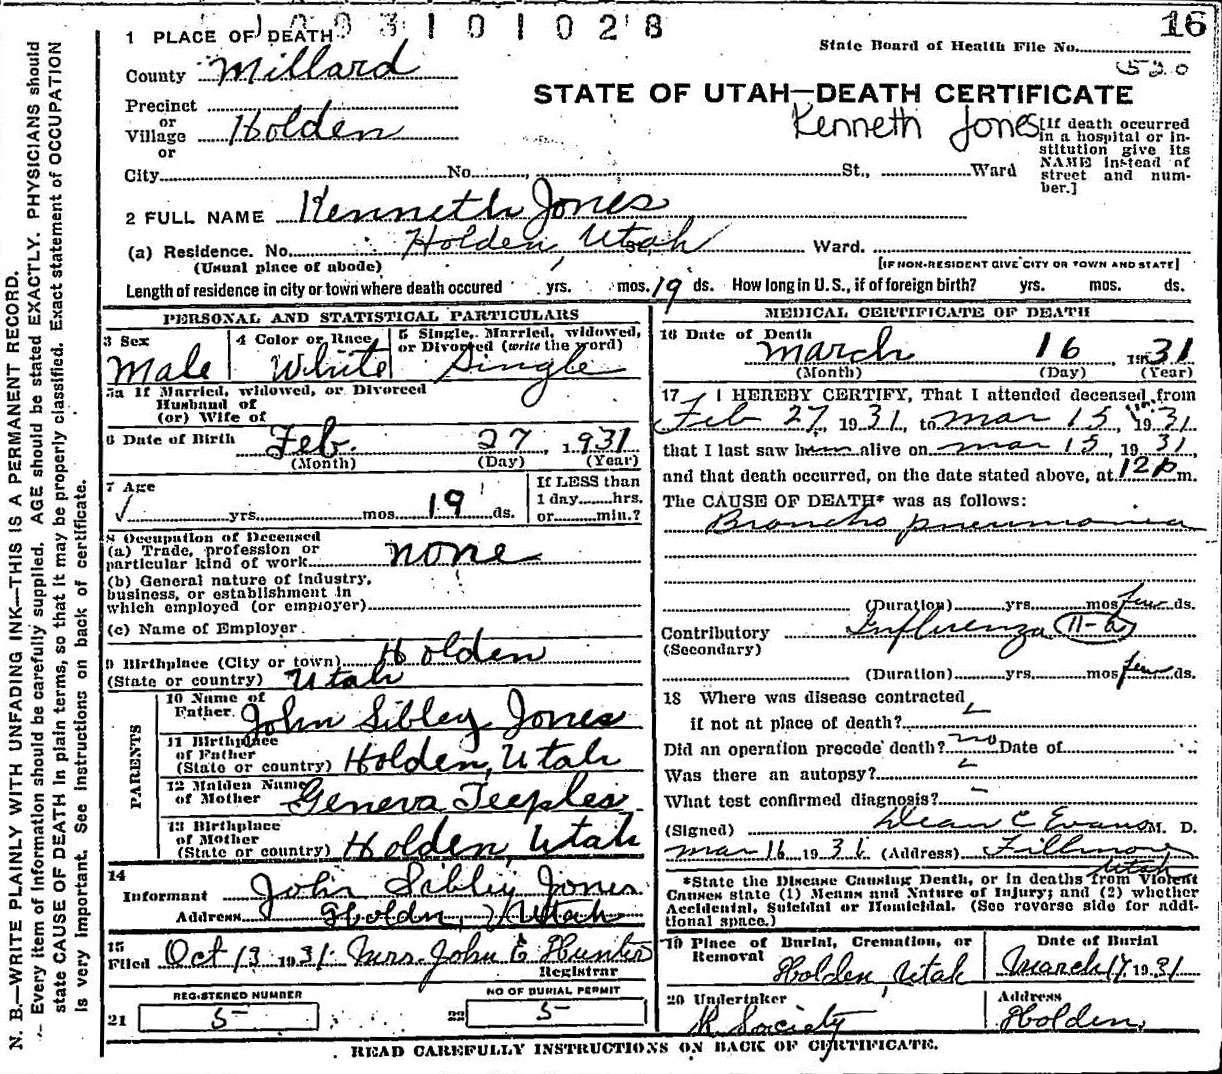 93101028
16
1 PLACE OF DEATH
State Board of Health File No.
520
County Millard
STATE OF UTAH—DEATH CERTIFICATE
Precinct
or
Village Holden
or
Kenneth Jones
[If death occurred in a hospital or institution give its NAME instead of street and number.]
City No. St., Ward
2 FULL NAME Kenneth Jones
(a) Residence. No. Holden, Utah St. Ward.
(Usual place of abode) [IF NON-RESIDENT GIVE CITY OR TOWN AND STATE]
Length of residence in city or town where death occured yrs. mos. 19 ds. How long in U. S., if of foreign birth? yrs. mos. ds.
PERSONAL AND STATISTICAL PARTICULARS
3 Sex Male
4 Color or Race White
5 Single, Married, widowed, or Divorced (write the word) Single
5a If Married, widowed, or Divorced
Husband of
(or) Wife of
6 Date of Birth Feb. 27, 1931
(Month) (Day) (Year)
7 Age
yrs. mos. 19 ds.
If LESS than
1 day hrs.
or min.?
8 Occupation of Deceased
(a) Trade, profession or
particular kind of work none
(b) General nature of industry,
business, or establishment in
which employed (or employer)
(c) Name of Employer
9 Birthplace (City or town) Holden
(State or country) Utah
PARENTS
10 Name of
Father John Sibley Jones
11 Birthplace
of Father
(State or country) Holden, Utah
12 Maiden Name
of Mother Geneva Teeples
13 Birthplace
of Mother
(State or country) Holden, Utah
14
Informant John Sibley Jones
Address Holdn, Utah
15
Filed Oct 13 1931. Mrs. John E Hunter
Registrar
REGISTERED NUMBER
21 5
NO OF BURIAL PERMIT
22 5
MEDICAL CERTIFICATE OF DEATH
16 Date of Death
March 16, 1931
(Month) (Day) (Year)
17 I HEREBY CERTIFY, That I attended deceased from
Feb 27, 1931, to mar 15, 1931
that I last saw him alive on mar 15, 1931
and that death occurred, on the date stated above, at 12 p m.
The CAUSE OF DEATH* was as follows:
Broncho pneumonia
(Duration) yrs. mos few ds.
Contributory Influenza 11-b
(Secondary)
(Duration) yrs. mos few ds.
18 Where was disease contracted
if not at place of death?
Did an operation precede death? no Date of
Was there an autopsy?
What test confirmed diagnosis?
(Signed) Dean C Evans M. D.
mar 16 1931 (Address) Fillmore
Utah
*State the Disease Causing Death, or in deaths from Violent
Causes state (1) Means and Nature of Injury; and (2) whether
Accidental, Suicidal or Homicidal. (See reverse side for additional space.)
19 Place of Burial, Cremation, or
Removal Holden, Utah
Date of Burial
March 17, 1931
20 Undertaker
R Society
Address
Holden,
READ CAREFULLY INSTRUCTIONS ON BACK OF CERTIFICATE.
N. B.—WRITE PLAINLY WITH UNFADING INK—THIS IS A PERMANENT RECORD.
Every item of information should be carefully supplied. AGE should be stated EXACTLY. PHYSICIANS should
state CAUSE OF DEATH in plain terms, so that it may be properly classified. Exact statement of OCCUPATION
is very important. See instructions on back of certificate.